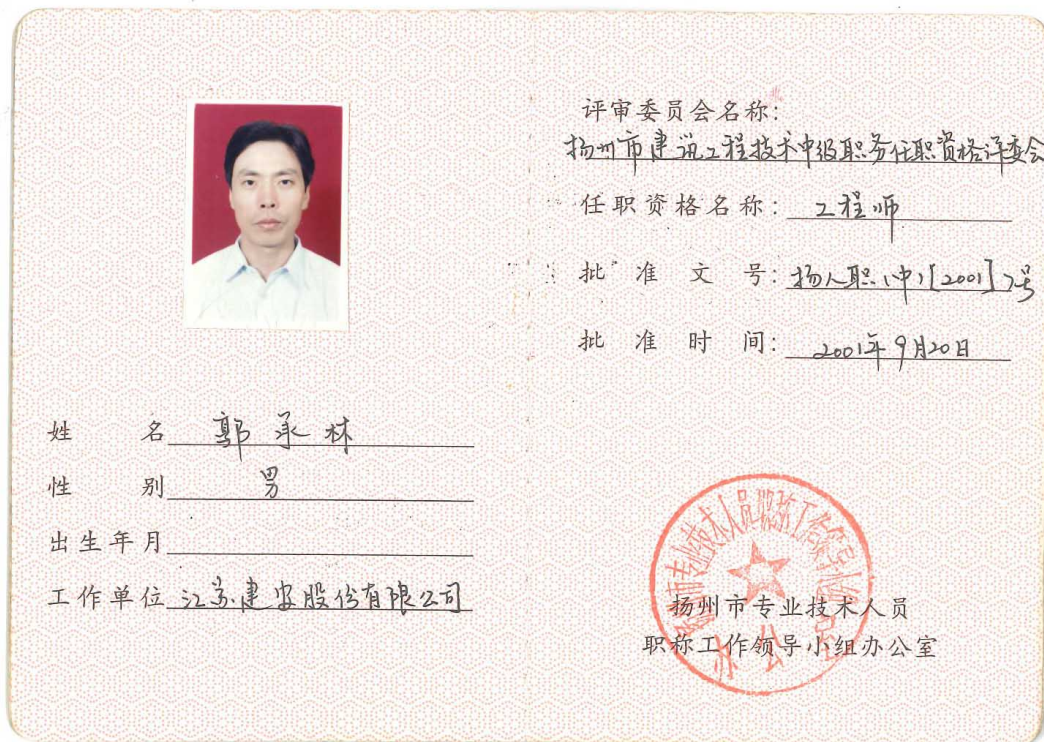 姓名 郭承林
性别 男
出生年月
工作单位 江苏建安股份有限公司
评审委员会名称:
扬州市建筑工程技术中级职务任职资格评委会
任职资格名称: 工程师
批准文号: 扬人职(中)[2001]7号
批准时间: 2001年9月20日
扬州市专业技术人员职称工作领导小组
办公室
扬州市专业技术人员
职称工作领导小组办公室